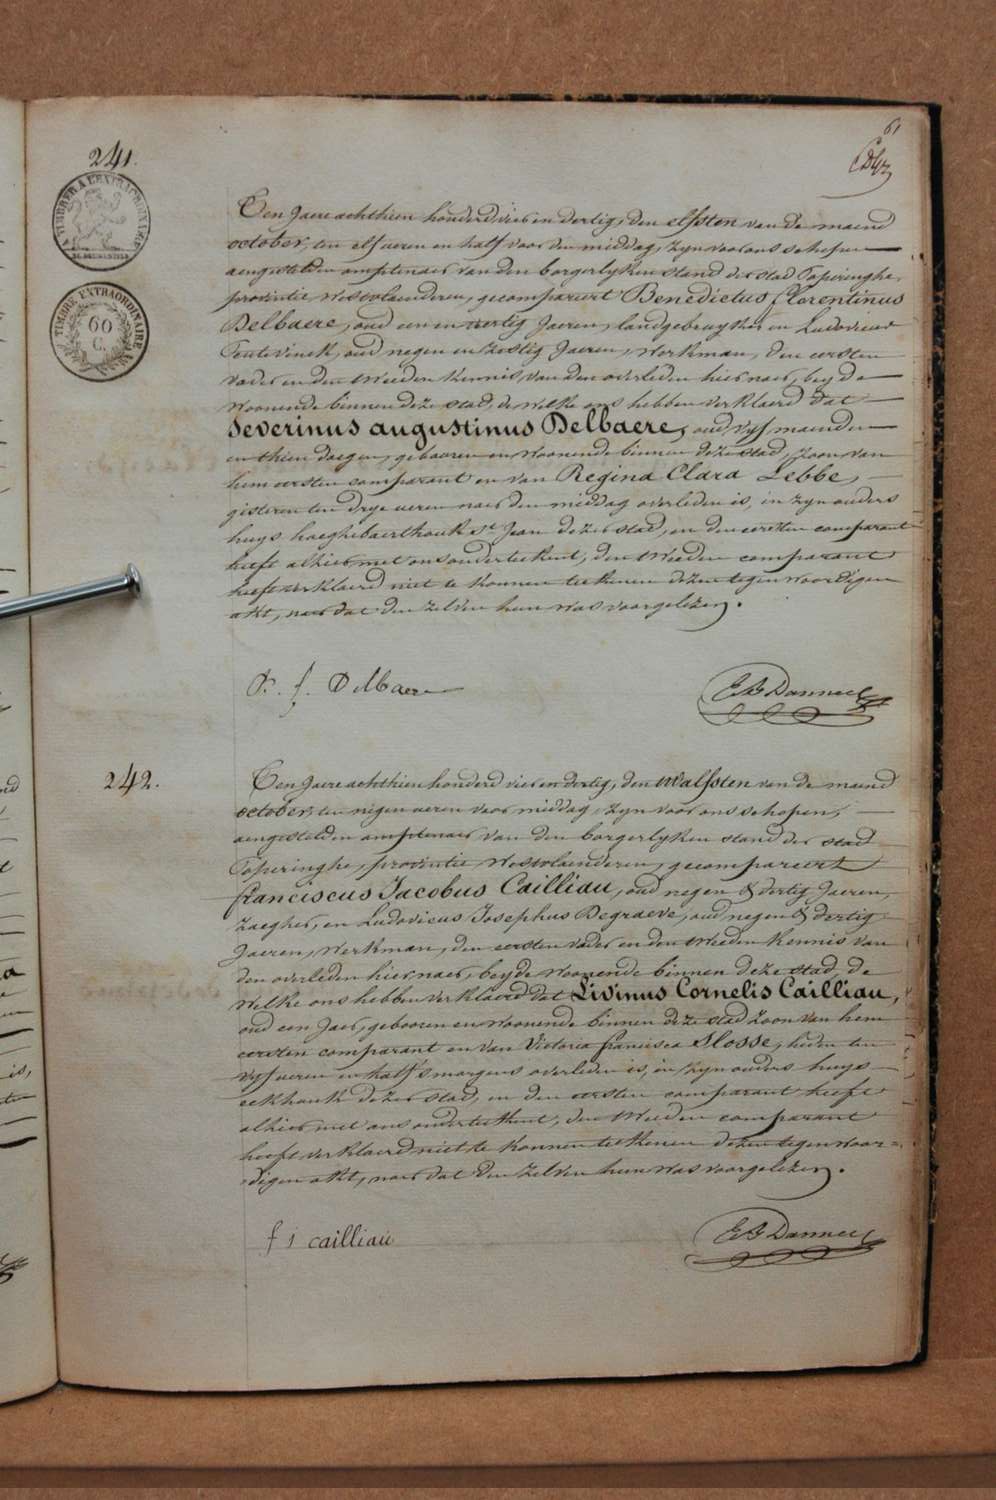 61
241.
TIMBRE A L'EXTRAORDINAIRE
TIMBRE EXTRAORDINAIRE
60
C.
Een Jaere achthien honderd vier en dertig, den elfsten van de maend
october, ten elf ueren en half voor den middag, zyn voor ons schepen
aengestelden amptenaer van den borgerlyken stand der stad Poperinghe,
provintie Westvlaenderen, gecompareert Benedictus Florentinus
Delbaere, oud een en veertig Jaeren, landgebruyker en Ludovicus
oud negen en zestig Jaeren, werkman, den eersten
vader en den tweeden kennis, van den overleden hier naer, beyde
woonende binnen deze stad, de welke ons hebben verklaerd dat
Severinus augustinus Delbaere, oud vyf maenden
en thien daegen, gebooren en woonende binnen deze stad, zoon van
hem eersten comparant en van Regina Clara Lebbe,
gisteren ten drye ueren naer den middag overleden is, in zyn ouders
huys St Jean dezer stad, en den eersten comparant
heeft alhier met ons onderteekent, den tweeden comparant
heeft verklaerd niet te konnen teekenen dezen tegenwoordigen
akt, naer dat den zelven hun was voorgelezen.
B. f. Delbaere
242.
Een Jaere achthien honderd vier en dertig, den twalfsten van de maend
october, ten negen ueren voor middag, zyn voor ons schepen,
aengestelden amptenaer van den borgerlyken stand der stad
Poperinghe, provintie Westvlaenderen, gecompareert
franciscus Jacobus Cailliau, oud negen & dertig Jaeren,
Zaegher, en Ludovicus Josephus Degraeve, oud negen & dertig
Jaeren, werkman, den eersten vader en den tweeden kennis van
den overleden hier naer, beyde woonende binnen deze stad, de
welke ons hebben verklaerd dat Livinus Cornelis Cailliau,
oud een Jaer, gebooren en woonende binnen deze stad zoon van hem
eersten comparant en van Victoria francisca Slosse, heden ten
vyf ueren en half 's morgens overleden is, in zyn ouders huys
eekhouk dezer stad, en den eersten comparant heeft
alhier met ons onderteekent, den tweeden comparant
heeft verklaerd niet te konnen teekenen dezen tegenwoor=
digen akt, naer dat den zelven hun was voorgelezen.
f j cailliau